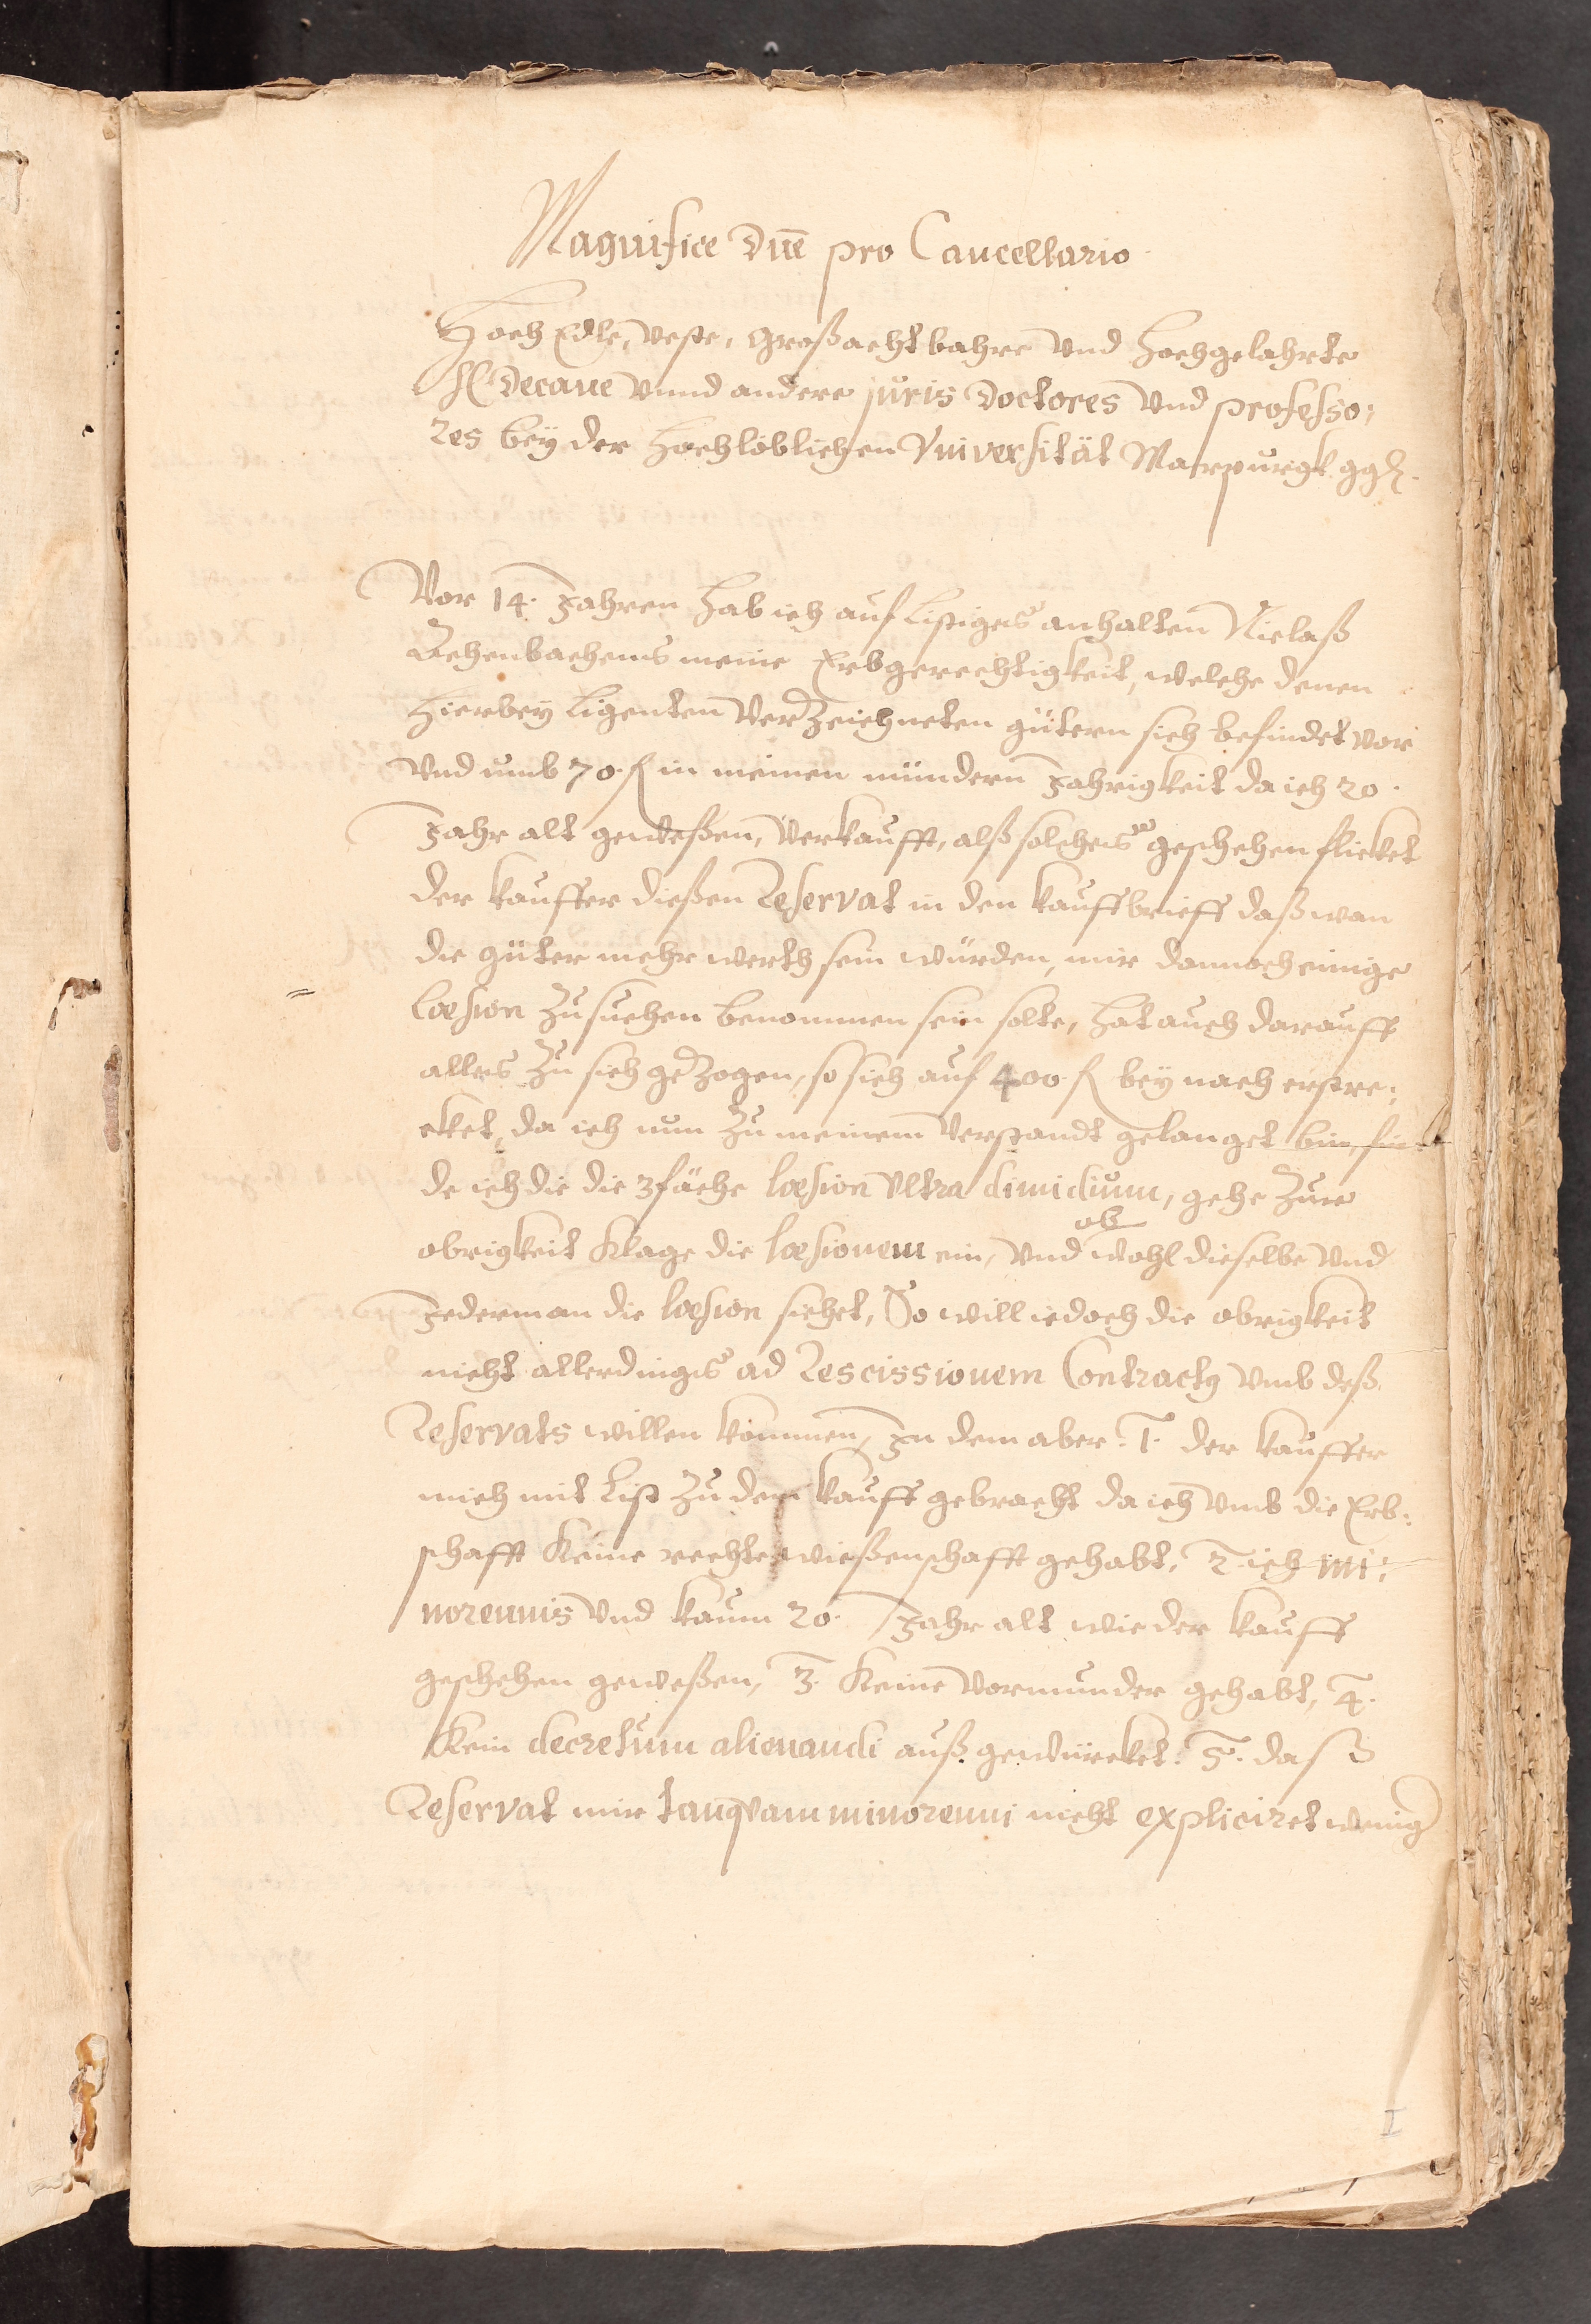 Magnifice Dn̄e pro Cancellario
HochEdle, Veste, Großachtbahre Vnd Hochgelahrte
H. Decane Vnnd andere juris Doctores Vnd professo:
res beÿ der Hochlöblichen Vniversität Marpurgk ggh.
Vor 14. Jahren hab ich auf listiges anhalten Niclaß
meine Erbgerechtigkeit, welche denen
hierbeÿ ligenten Verzeichneten gütern sich befindet vor
Vnd umb 70. fl in meinen mündern Jahrigkeit da ich 20.
Jahr alt geweßen, Verkaufft, alß solches geschehen flicket
der kauffer dießen Reservat in den kauffbrieff daß wan
die güter mehr werth sein würden, mir dannoch einige
læsion zu suchen benommen sein solte, hat auch darauff
alles zu sich gezogen, so sich auf 400. fl beÿ nach erstre:
cket, da ich nun zu meinem Verstandt gelanget bin, fin
de ich die die 3fache læsion Vltra dimidium, gehe zur
ob
obrigkeit Klage die læsionem ein, Vnd wohl dieselbe Vnd
Jederman die læsion siehet, So will iedoch die obrigkeit
nicht allerdings ad Rescissionem Contractq Vmb deß
Reservats willen kommen, In dem aber. 1. der kauffer
mich mit list zu dem kauff gebracht da ich Vmb die Erb:
schafft Keine rechte wießenschafft gehabt, 2. ich mi:
norennis Vnd kaum 20. Jahr alt wie der kauff
geschehen geweßen, 3. Keine Vormunder gehabt, 4.
Kein decretum alienandi auß gewürcket. 5. daß
Reservat mir tanqvam minorenni nicht expliciret wenig
I